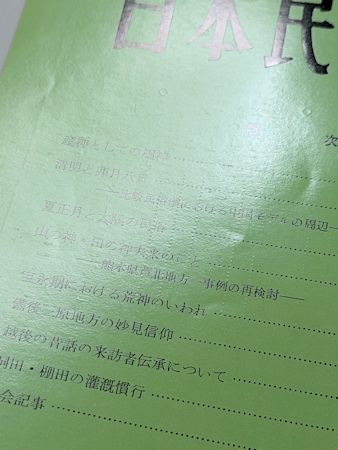 日本民
次
産神としての
清明と卯月八日
における中国モデルの周辺—
夏正月と大隅の民俗
山の神・田の神去来のこと
—熊本県芦北地方一事例の再検討—
宝永期における荒神のいわれ
備後三原地方の妙見信仰
越後の昔話の来訪者伝承について
田・棚田の灌漑慣行
会記事